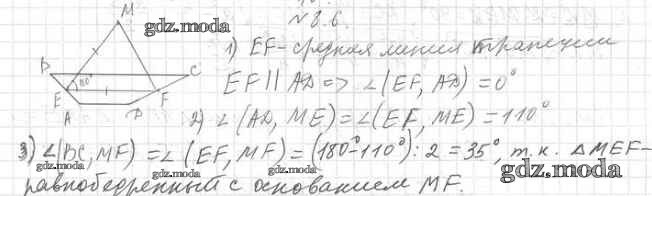 M
№ 8.6.
gdz.moda
1) EF - средняя линия трапеции
B C
110°
EF || AD => ∠(EF, AD) = 0°
E F
A D
2) ∠(AD, ME) = ∠(EF, ME) = 110°
3) ∠(BC, MF) = ∠(EF, MF) = (180°-110°) : 2 = 35°, т.к. △MEF-
gdz.moda gdz.moda gdz.moda gdz.moda
равнобедренный с основанием MF.
gdz.moda gdz.moda